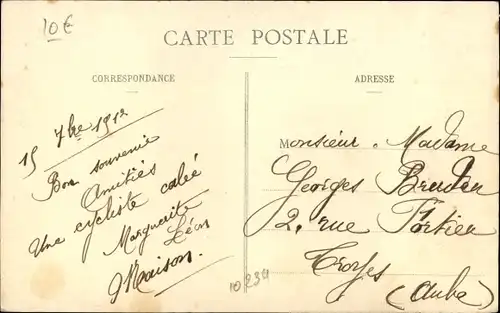 10€
CARTE POSTALE
CORRESPONDANCE
ADRESSE
15 7bre 1912
Bon souvenir
Amitiés
Une cycliste calée
Marguerite
Léon
Maison.
Monsieur Madame
Georges
2, rue
Troyes
(Aube)
10234